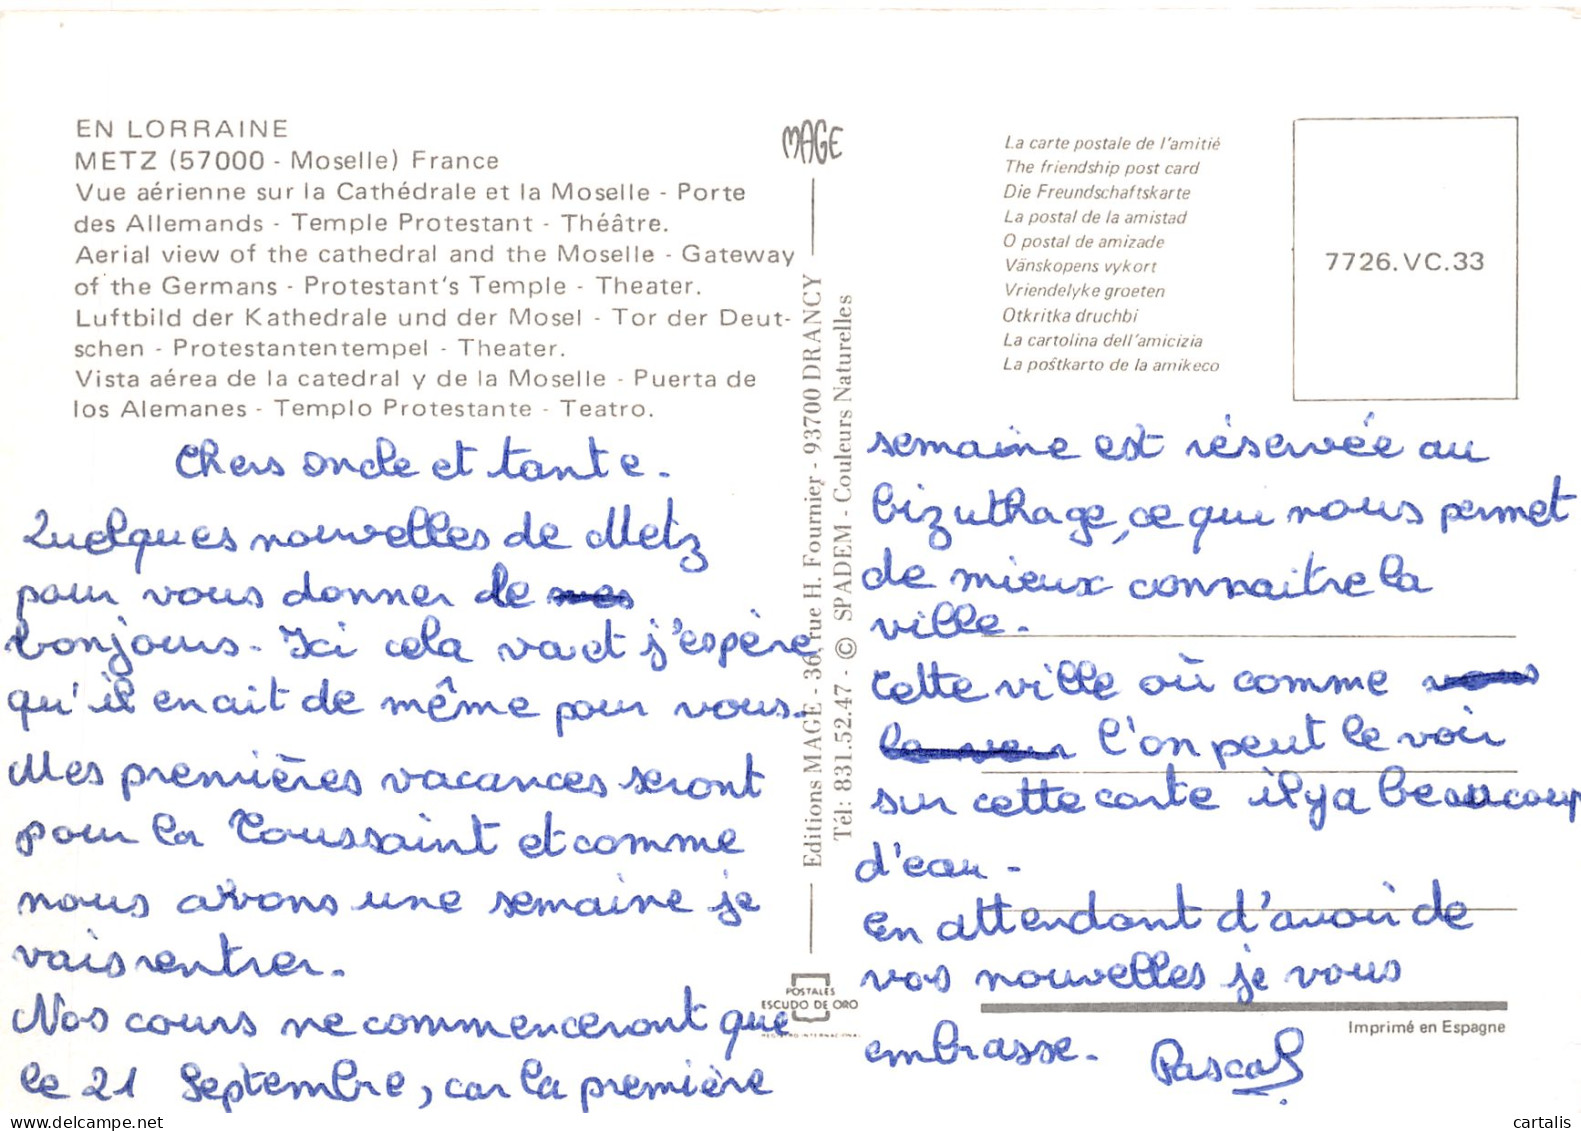 EN LORRAINE
METZ (57000 - Moselle) France
Vue aérienne sur la Cathédrale et la Moselle - Porte
des Allemands - Temple Protestant - Théâtre.
Aerial view of the cathedral and the Moselle - Gateway
of the Germans - Protestant's Temple - Theater.
Luftbild der Kathedrale und der Mosel - Tor der Deut-
schen - Protestantentempel - Theater.
Vista aérea de la catedral y de la Moselle - Puerta de
los Alemanes - Templo Protestante - Teatro.
Chers oncle et tante.
Quelques nouvelles de Metz
pour vous donner le
bonjours. Ici cela va et j'espère
qu'il en ait de même pour vous.
Mes premières vacances seront
pour la Toussaint et comme
nous avons une semaine je
vais rentrer.
Nos cours ne commenceront que
le 21 Septembre, car la première
MAGE
Editions MAGE - 36, rue H. Fournier - 93700 DRANCY
Tél: 831.52.47 - © SPADEM - Couleurs Naturelles
POSTALES
ESCUDO DE ORO
La carte postale de l'amitié
The friendship post card
Die Freundschaftskarte
La postal de la amistad
O postal de amizade
Vänskopens vykort
Vriendelyke groeten
Otkritka druchbi
La cartolina dell'amicizia
La poŝtkarto de la amikeco
7726.VC.33
semaine est réservée au
bizuthage, ce qui nous permet
de mieux connaitre la
ville.
Cette ville où comme
l'on peut le voir
sur cette carte il y a beaucoup
d'eau.
En attendant d'avoir de
vos nouvelles je vous
embrasse. Pascal
Imprimé en Espagne
www.delcampe.net
cartalis